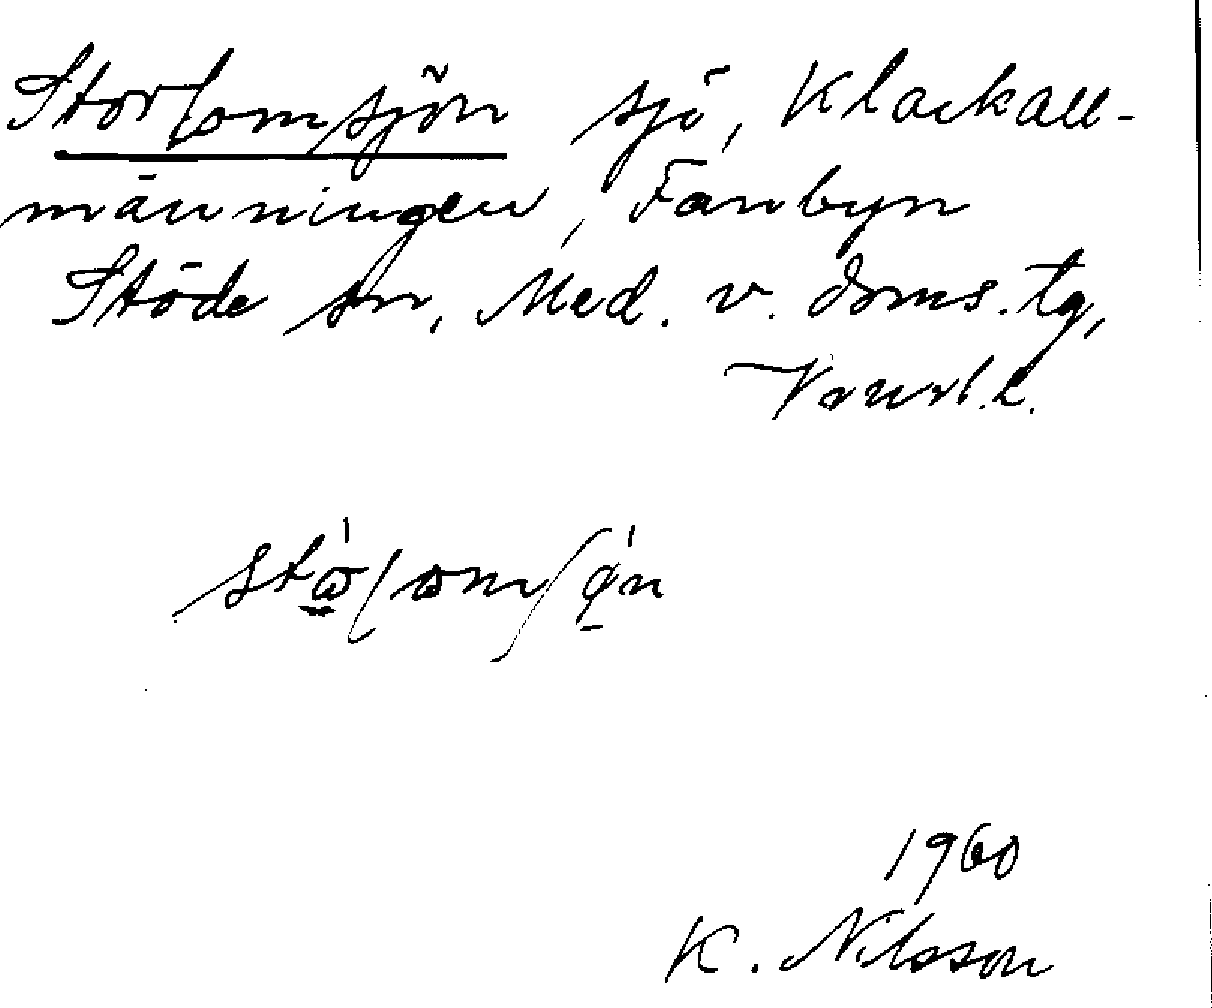 Storlomsjön sjö, Klackall-
männingen, Fanbyn
Stöde sn, Med. v. doms. tg,
Vnorl. l.
1960
K. Nilsson